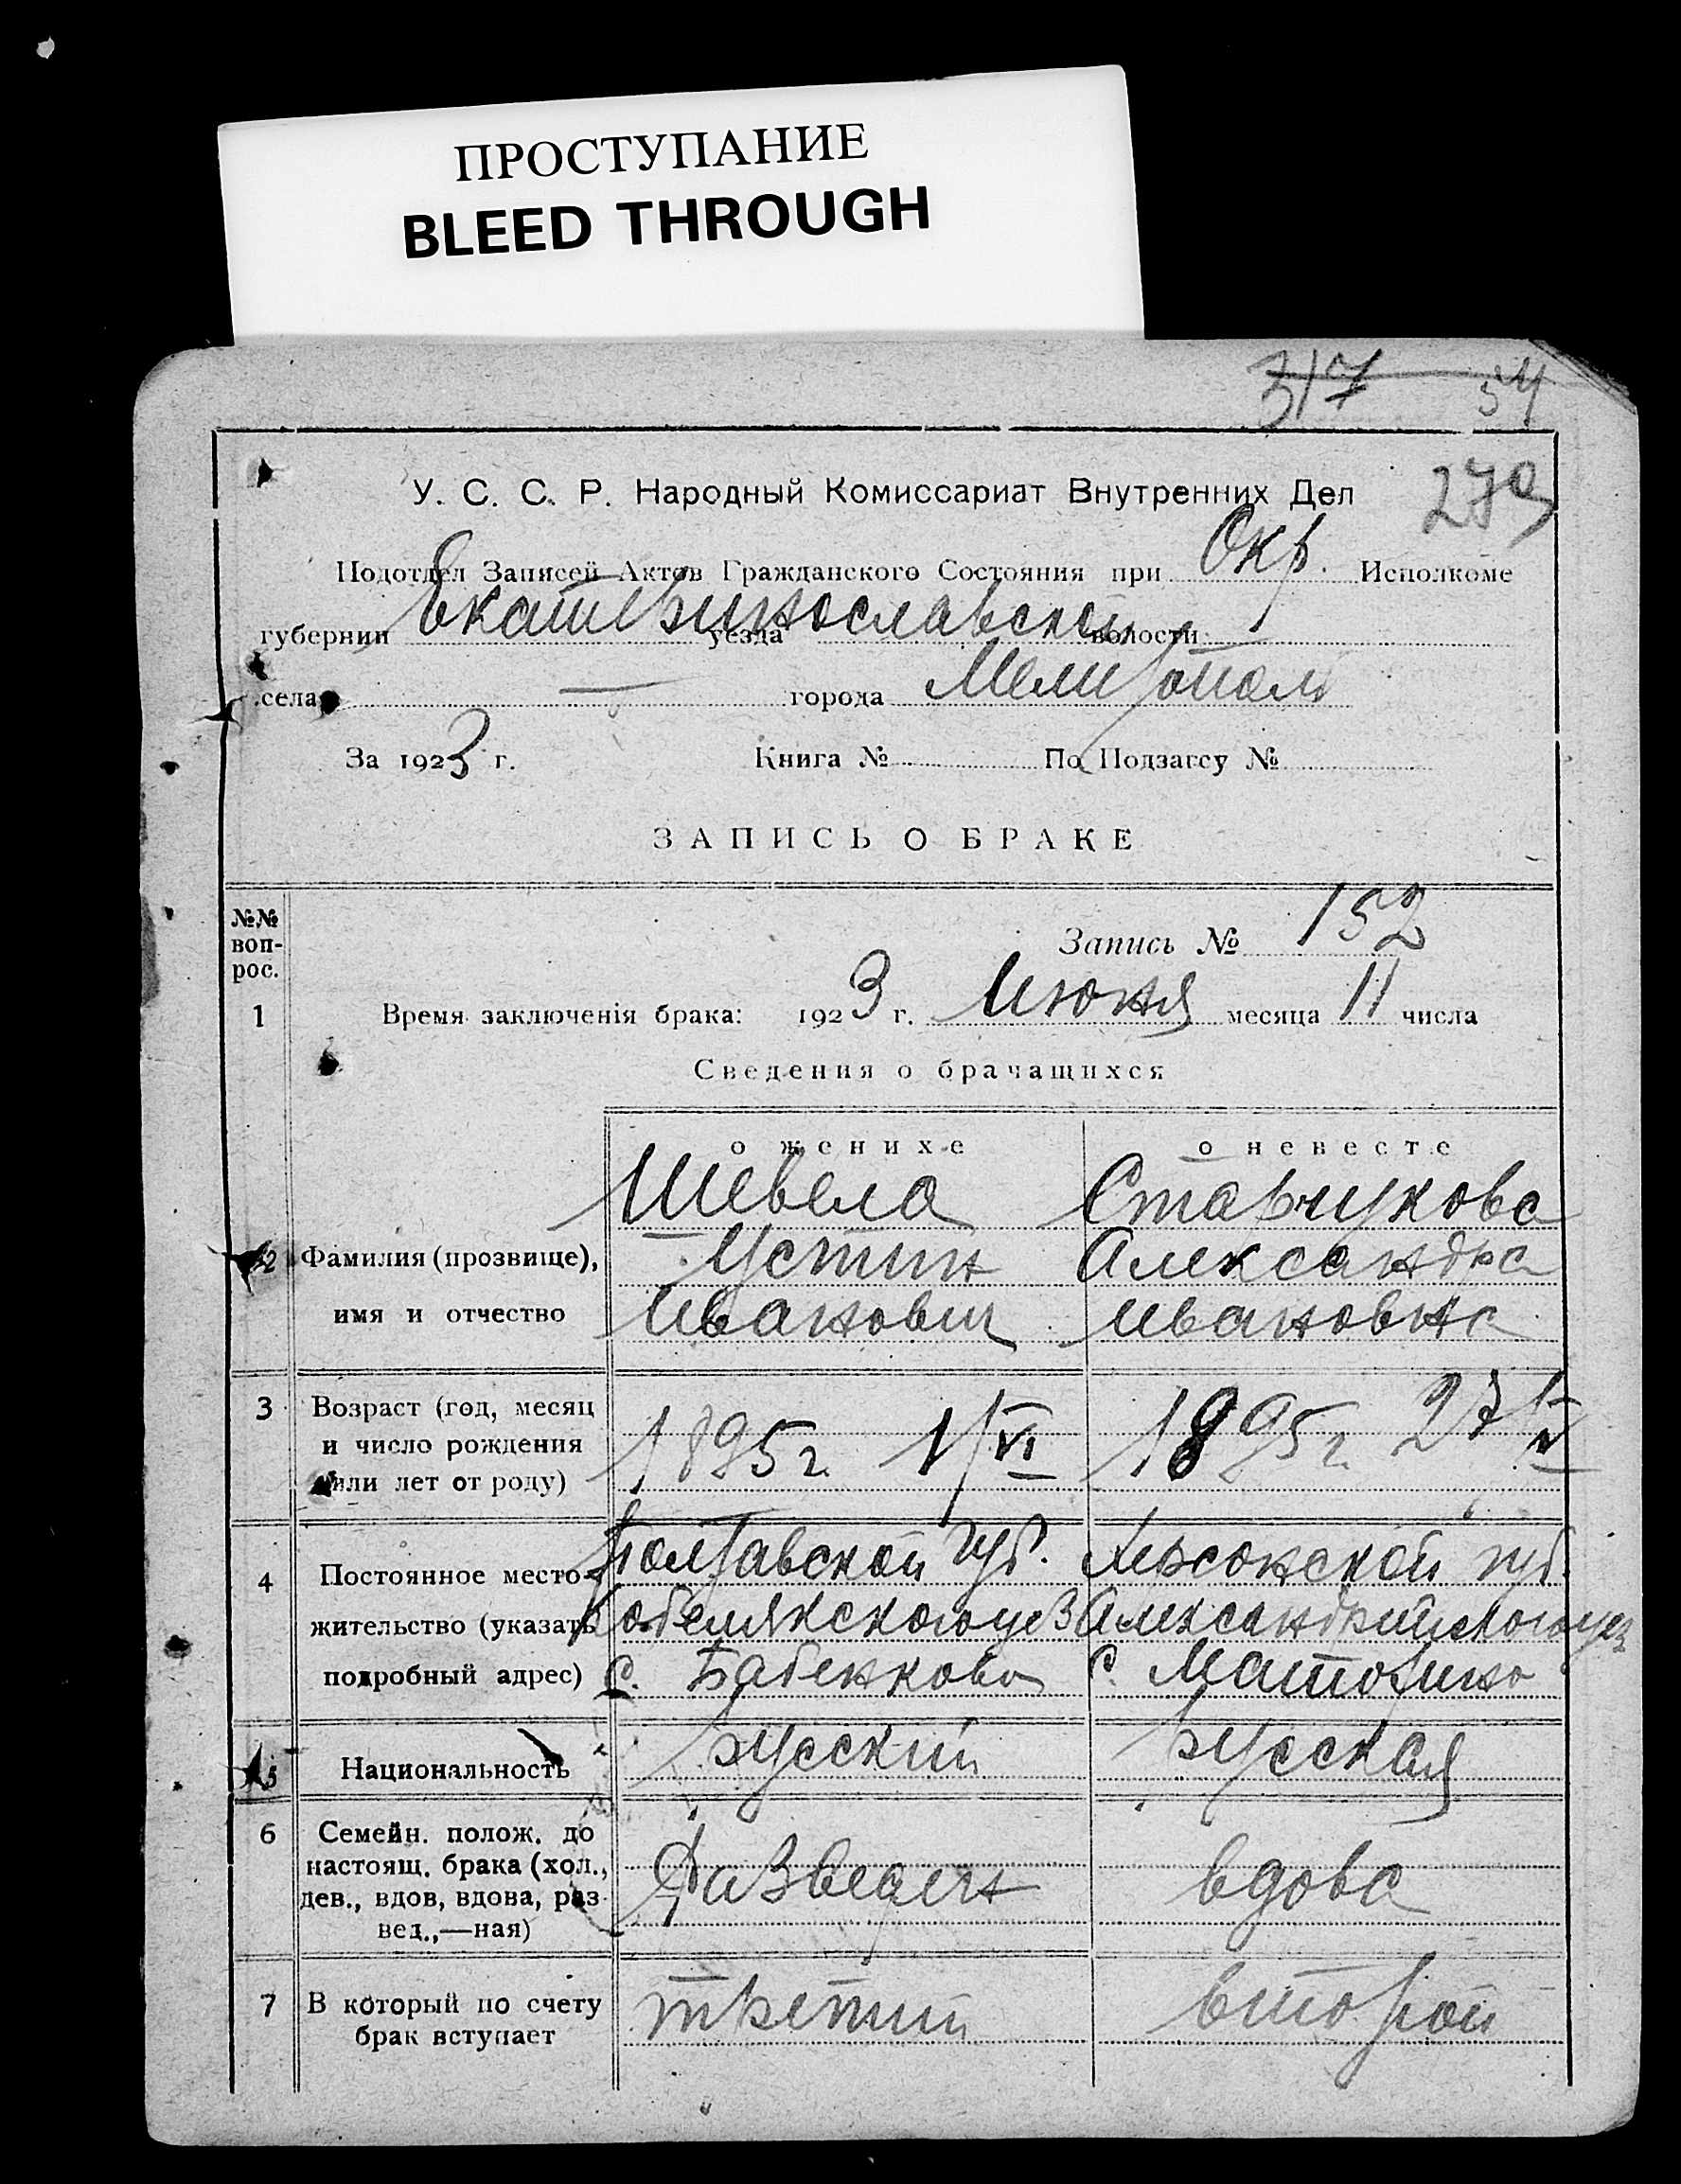 ПРОСТУПАНИЕ
BLEED THROUGH
317 54
279
У. С. С. Р. Народный Комиссариат Внутренних Дел
Подотдел Записей Актов Гражданского Состояния при Окр. Исполкоме
губернии Екатеринославской уезда волости
села — города Мелитополь
За 1923 г. Книга № По Подзагсу №
ЗАПИСЬ О БРАКЕ
№№ воп-рос.
Запись № 152
1 Время заключенія брака: 1923 г. Июня месяца 11 числа
Сведения о брачащихся
о женихе о невесте
Шевела Старчукова
2 Фамилия (прозвище), Устин Александра
имя и отчество Иванович Ивановна
3 Возраст (год, месяц
и число рождения 1895 г. 1/VI 1895 г. 27/IV
или лет от роду)
4 Постоянное место- Полтавской губ. Херсонской губ.
жительство (указать Кобелякского уез Александрийского уез
подробный адрес) С. Бабенково с.
5 Национальность русский русская
6 Семейн. полож. до
настоящ. брака (хол.,
дев., вдов, вдова, раз- Разведен вдова
вед.,—ная)
7 В который по счету третий второй
брак вступает